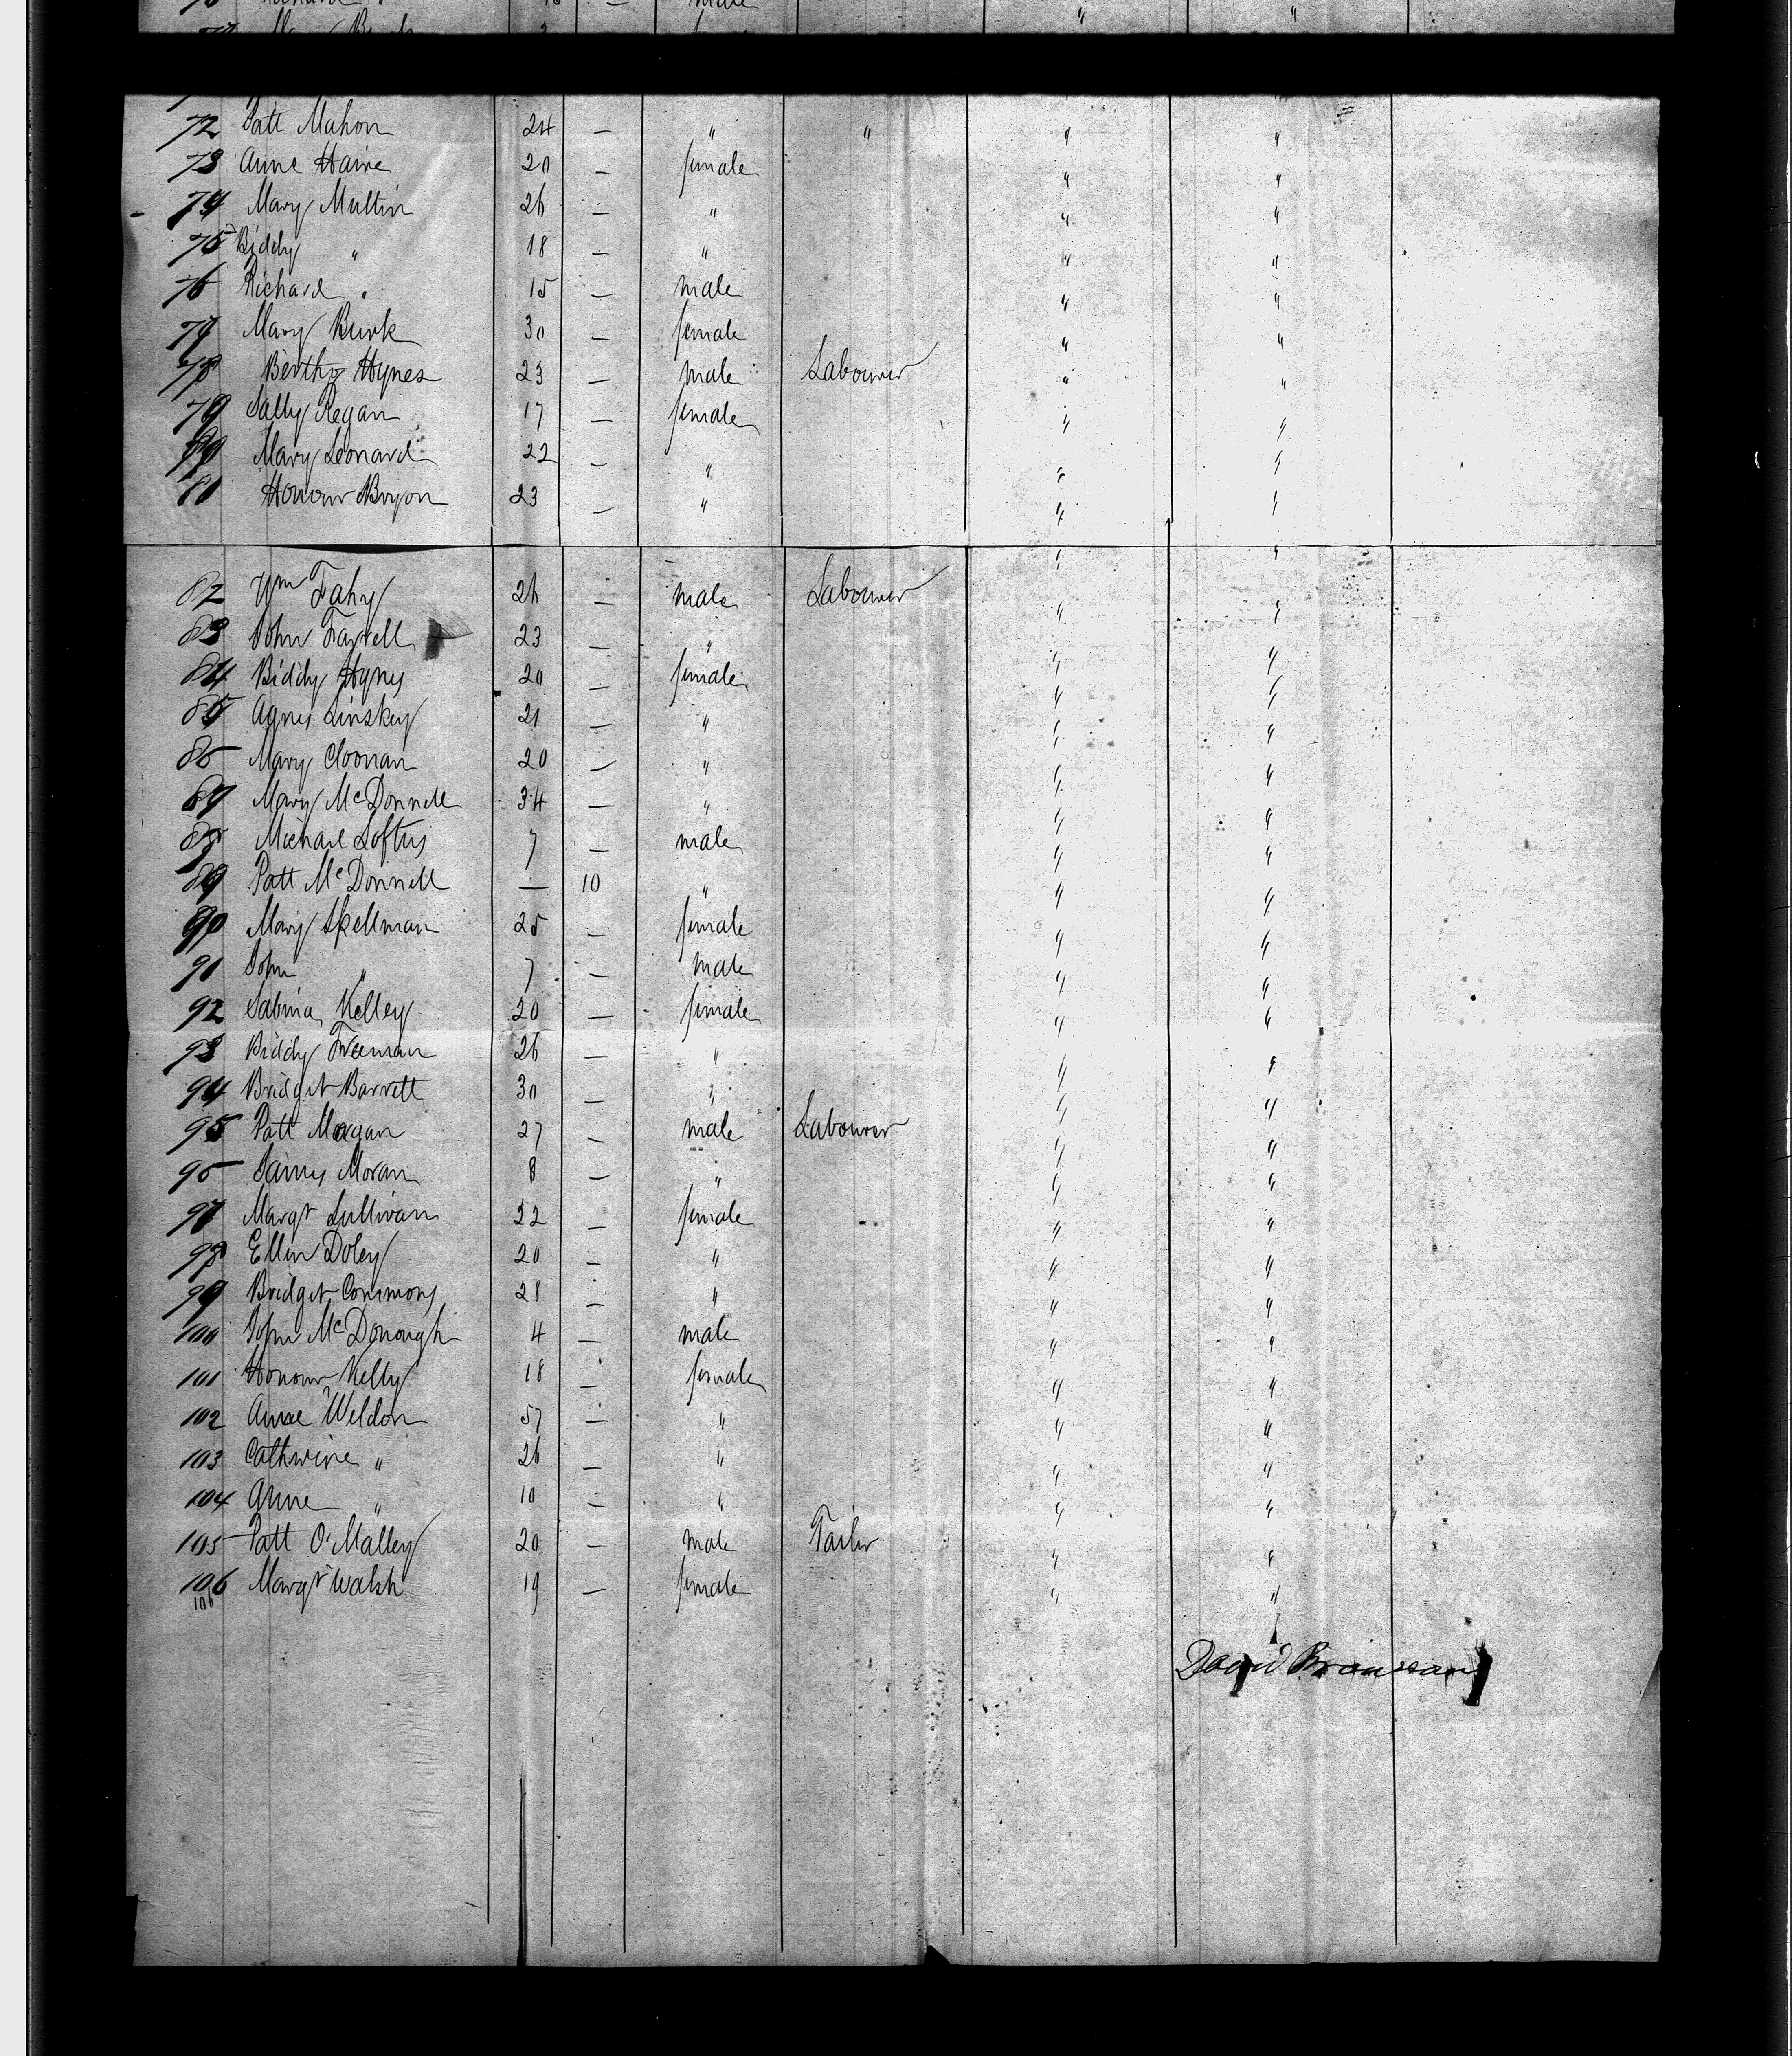 Richard " — male
" "
72 Patt Mahon 24 — " " " "
73 Anne Haire 20 — female " "
74 Mary Mullin 26 — " " "
75 Biddy " 18 — " " "
76 Richard " 15 — male " "
77 Mary Burk 30 — female " "
78 Berthy Hynes 23 — male Labourer " "
79 Sally Regan 17 — female " "
80 Mary Leonard 22 — " " "
81 Honour Bryon 23 — " " "
82 Wm Fahy 26 — male Labourer " "
83 John Farrell 23 — " " "
84 Biddy Hynes 20 — female " "
85 Agnes Linskey 21 — " " "
86 Mary Cloonan 20 — " " "
87 Mary McDonnell 34 — " " "
88 Michael Loftus 7 — male " "
89 Patt McDonnell — 10 " " "
90 Mary Spellman 25 — female " "
91 John " 7 — male " "
92 Sabina Kelley 20 — female " "
93 Biddy Freeman 26 — " " "
94 Bridget Barrett 30 — " " "
95 Patt Mogan 27 — male Labourer " "
96 James Moran 8 — " " "
97 Margt Sullivan 22 — female " "
98 Ellen Doley 20 — " " "
99 Bridget Commons 28 — " " "
100 John McDonough 4 — male " "
101 Honour Kelly 18 — female " "
102 Anne Weldon 57 — " " "
103 Catherine " 26 — " " "
104 Anne " 10 — " " "
105 Patt O'Malley 20 — male Tailor " "
106 Margt Walsh 19 — female " "
106
David